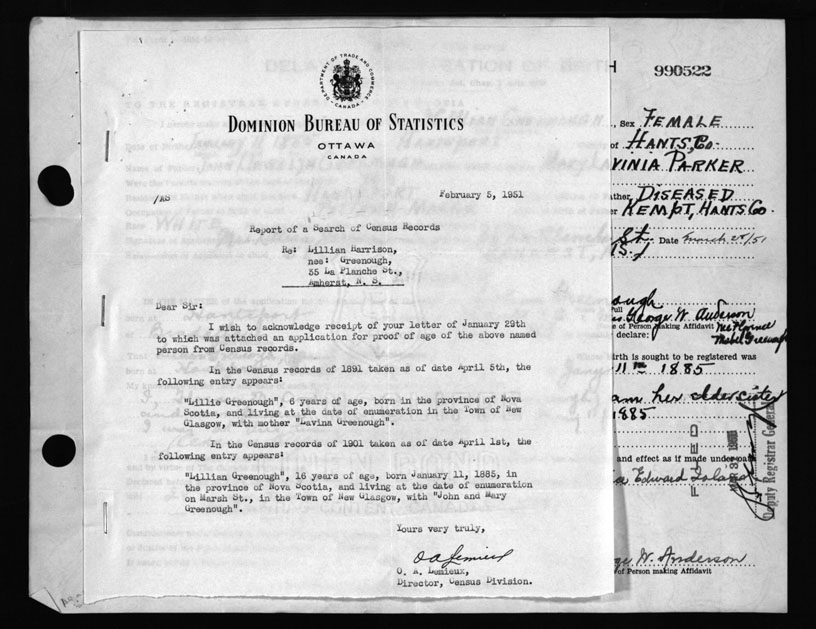 DEPARTMENT OF TRADE AND COMMERCE
CANADA
DOMINION BUREAU OF STATISTICS
OTTAWA
CANADA
/AS
February 5, 1951
Report of a Search of Census Records
Re: Lillian Harrison,
nee: Greenough,
35 La Planche St.,
Amherst, N. S.
Dear Sir:
I wish to acknowledge receipt of your letter of January 29th
to which was attached an application for proof of age of the above named
person from Census records.
In the Census records of 1891 taken as of date April 5th, the
following entry appears:
"Lillie Greenough", 6 years of age, born in the province of Nova
Scotia, and living at the date of enumeration in the Town of New
Glasgow, with mother "Lavina Greenough".
In the Census records of 1901 taken as of date April 1st, the
following entry appears:
"Lillian Greenough", 16 years of age, born January 11, 1885, in
the province of Nova Scotia, and living at the date of enumeration
on Marsh St., in the Town of New Glasgow, with "John and Mary
Greenough".
Yours very truly,
O A Lemieux
O. A. Lemieux,
Director, Census Division.
990522
Sex FEMALE
of HANTS, Co.
VINIA PARKER
ather DISEASED
KEMPT, HANTS. Co.
St. Date March 28/51
S.
ough
George W. Anderson
e of Person making Affidavit
declare:
irth is sought to be registered was
11th 1885
am her elder sister
1885
and effect as if made under oath
Edward
FILED
Deputy Registrar General
ge W. Anderson
of Person making Affidavit